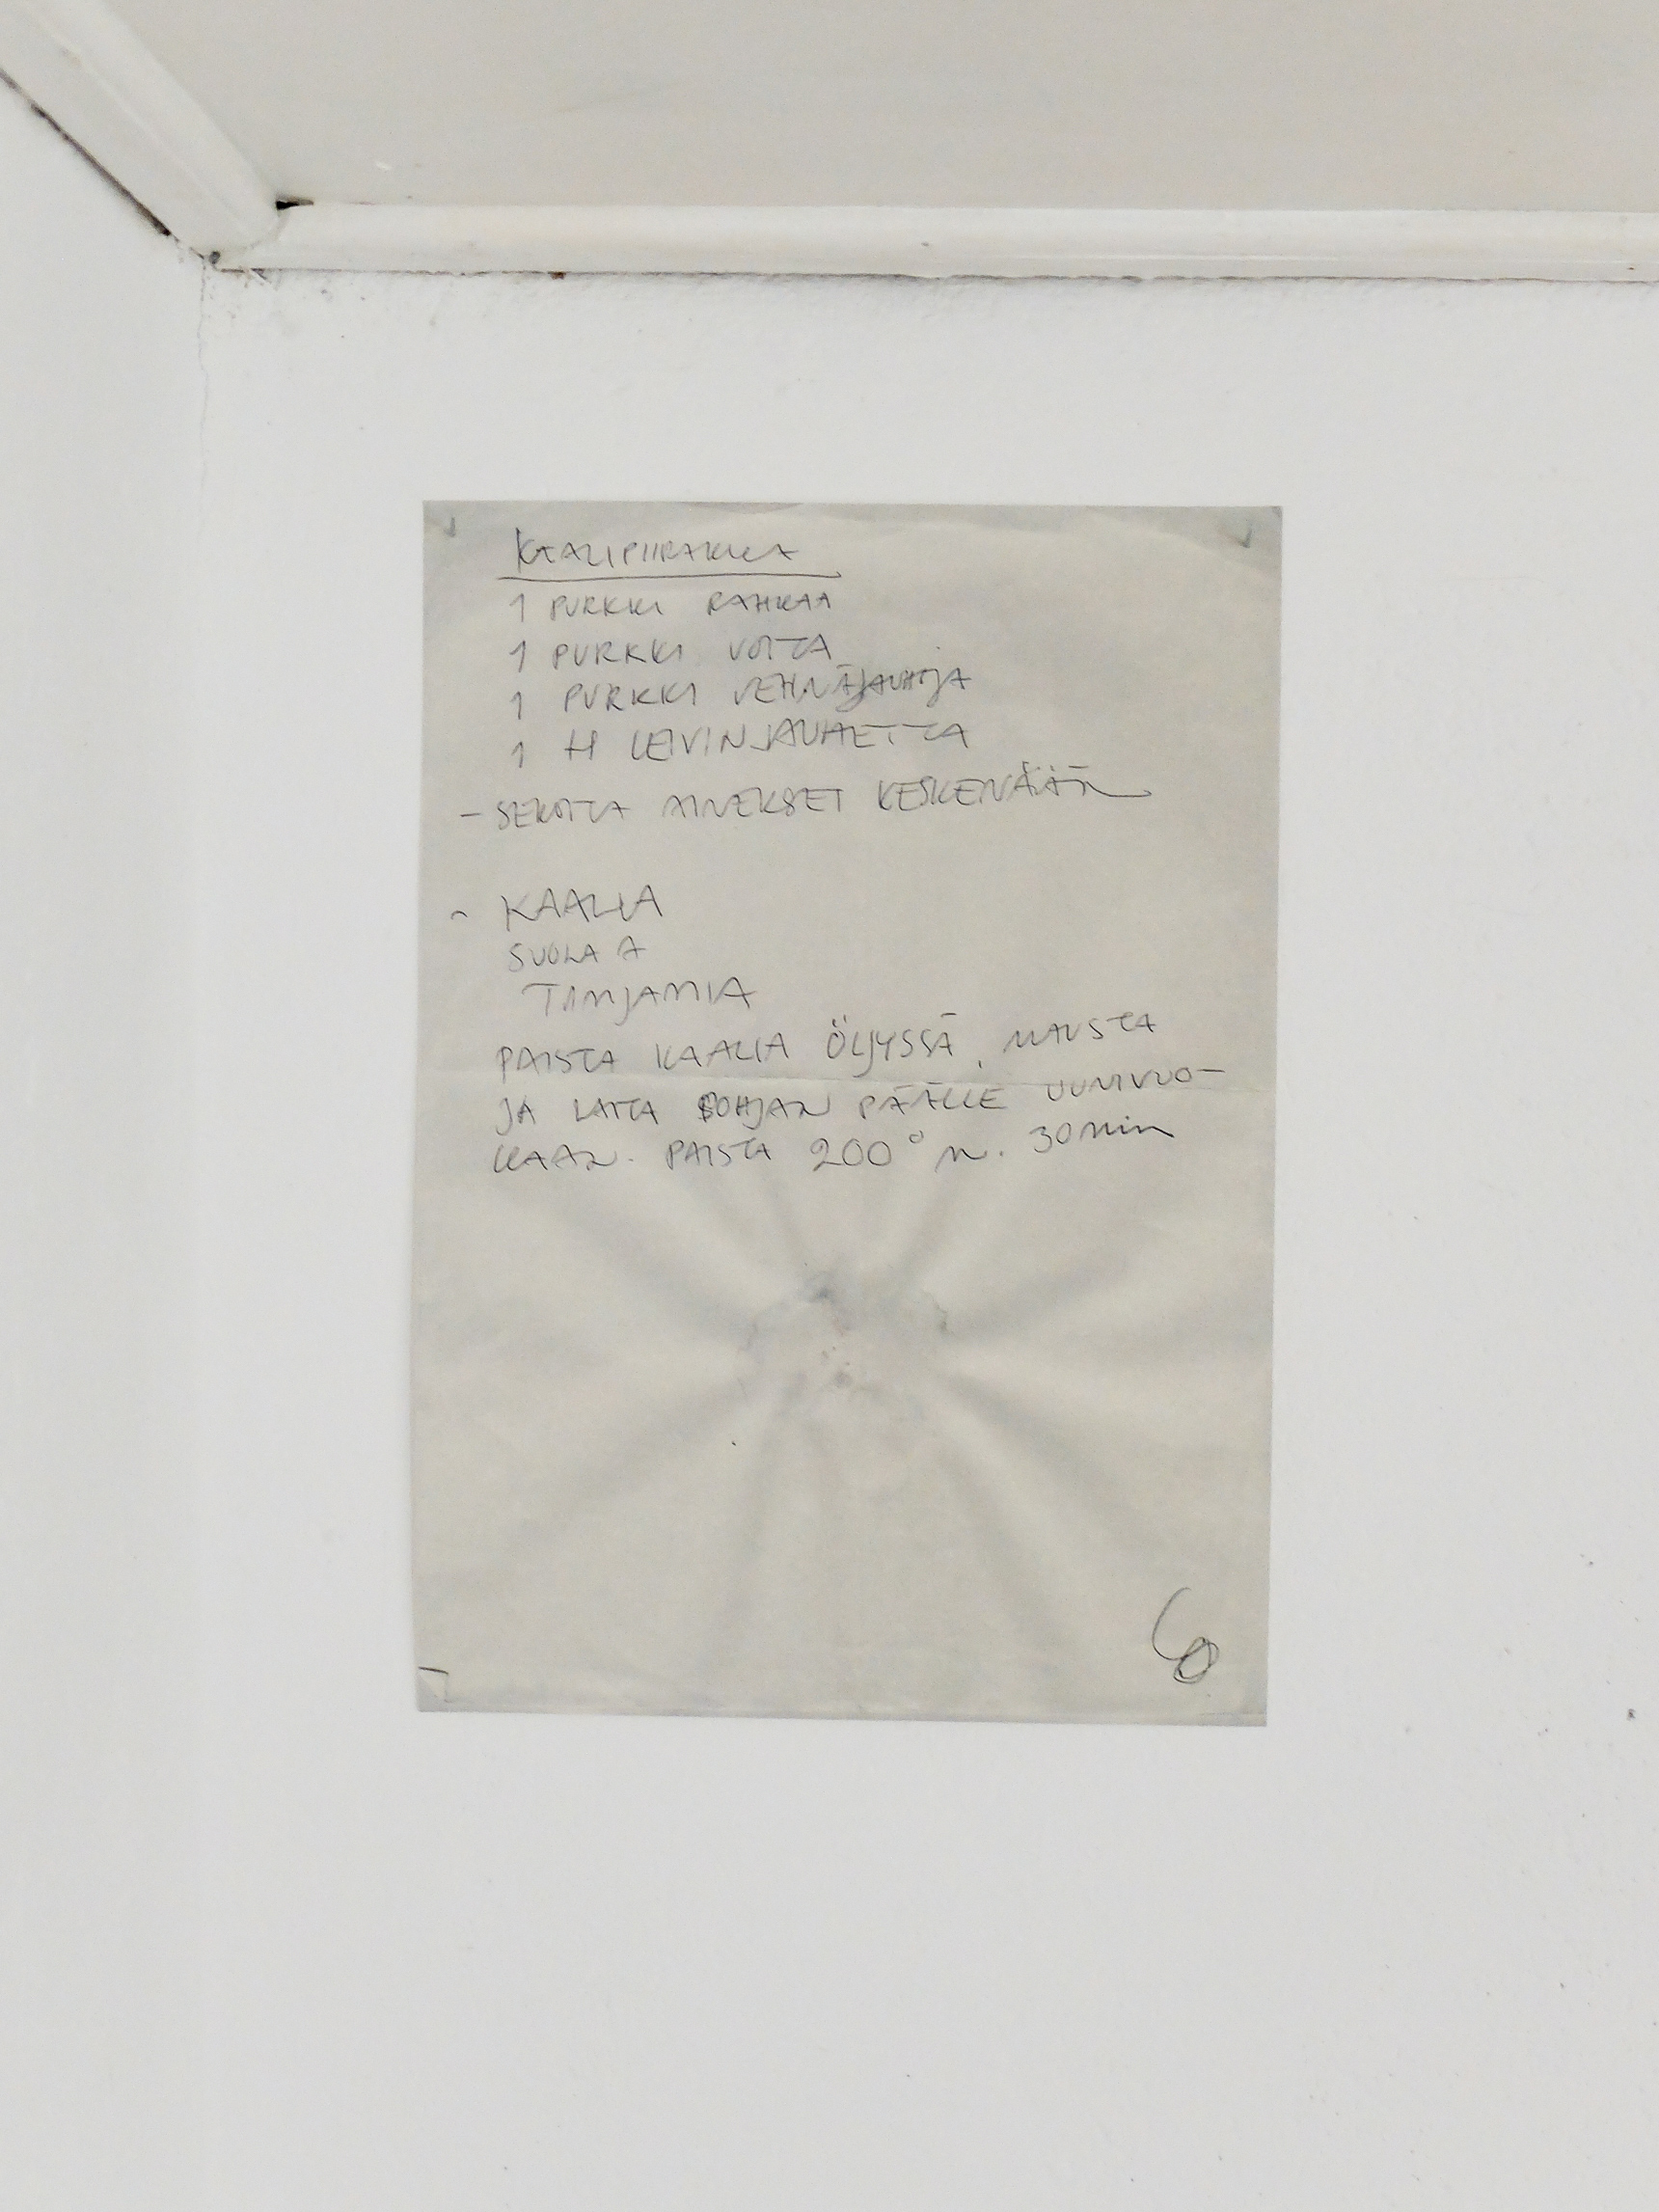 KAALIPIIRAKKA
1 PURKKI RAHKAA
1 PURKKI VOITA
1 PURKKI VEHNÄJAUHOJA
1 tl LEIVINJAUHETTA
- SEKOITA AINEKSET KESKENÄÄN
- KAALIA
SUOLAA
TIMJAMIA
PAISTA KAALIA ÖLJYSSÄ, MAUSTA
JA LAITA POHJAN PÄÄLLE UUNIVUO-
KAAN. PAISTA 200° N. 30 min